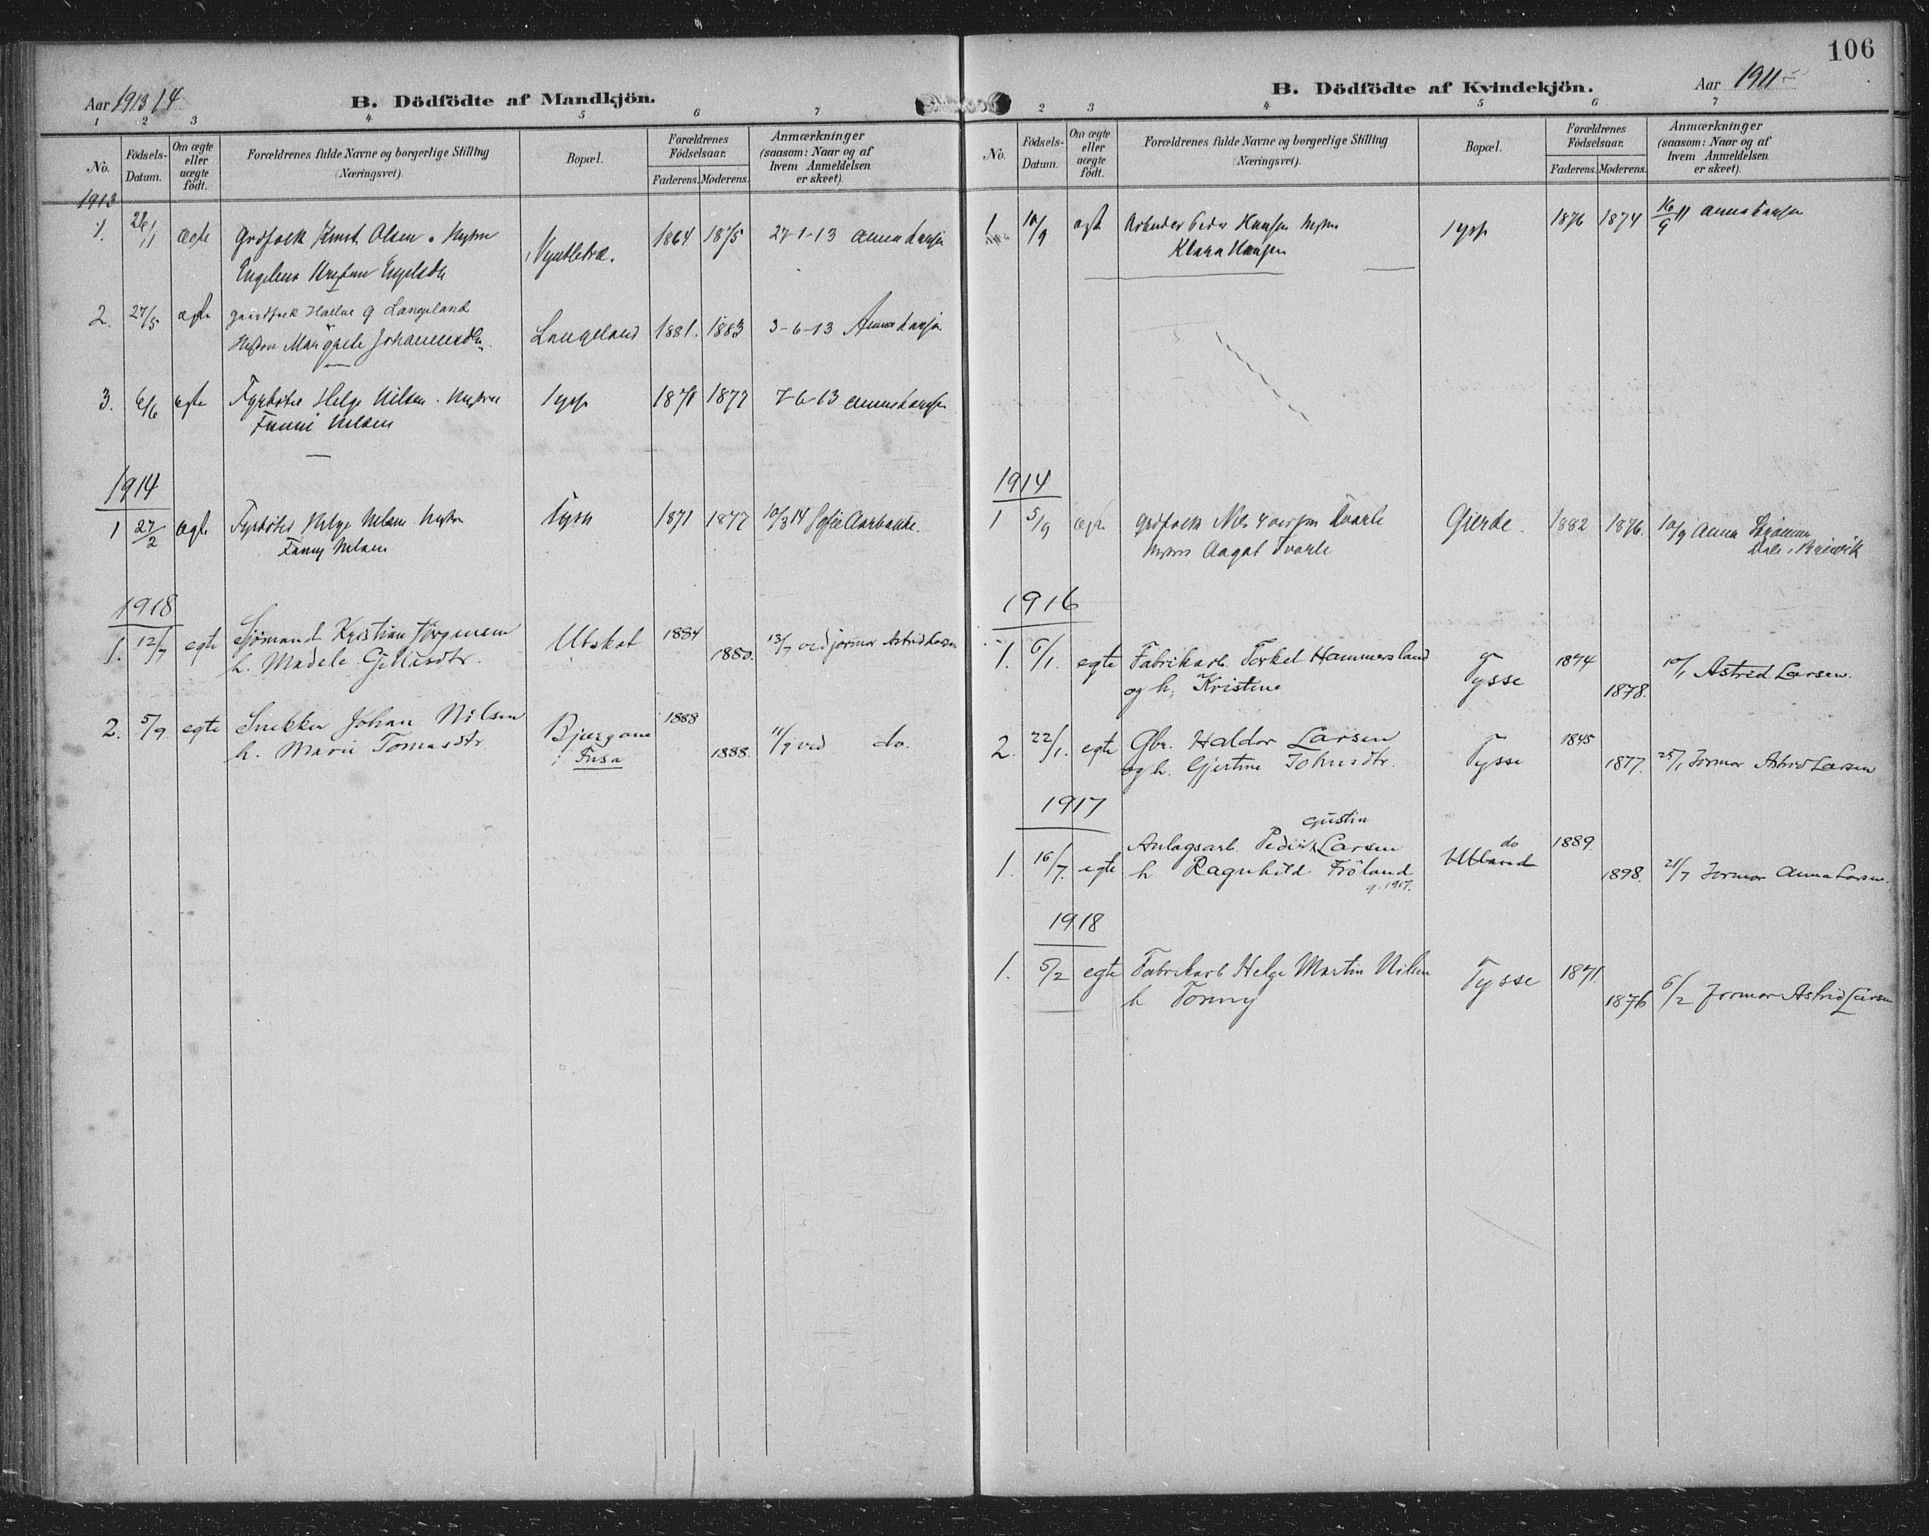 106
Aar 1913 14
B. Dödfödte af Mandkjön.
1 2 3 4 5 6 7
No.
Födsels-Datum.
Om ægte eller uægte födt.
Forældrenes fulde Navne og borgerlige Stilling
(Næringsvei).
Bopæl.
Forældrenes Födselsaar.
Faderens. Moderens.
Anmærkninger
(saasom: Naar og af
hvem Anmeldelsen
er skeet).
1913
1. 26/1 ægte Grdfolk Olsen Hustru 1864 1875 27-1-13 Anna Larsen
Engelina
2. 27/5 ægte Q Langeland Langeland 1881. 1883 3-6-13 Anna Larsen
Hustru Margrete Johannesdtr.
3. 6/6 egte Fyrböter Helge Nilsen Hustru Tysse 1871 1877 7-6-13 Anna Larsen
Fanni Nilsen
1914
1 27/2 ægte Fyrböter Helge Nilsen Hustru Tysse 1871 1877 10/3 14 Sofie Aarbakke.
Fanny Nilsen
1918
1. 12/7 egte Sjömand Kristian Jörgensen Utskot 1884 1880. 13/7 ved jormor Astrid Larsen
h. Madele
2. 5/9 egte Snekker Johan Nilsen 1888 1888. 11/9 ved do.
h. Marie Tomasdtr. i Fusa
Aar 1911
B. Dödfödte af Kvindekjön.
2 3 4 5 6 7
No.
Födsels-Datum.
Om ægte eller uægte födt.
Forældrenes fulde Navne og borgerlige Stilling
(Næringsvei).
Bopæl.
Forældrenes Födselsaar.
Faderens. Moderens.
Anmærkninger
(saasom: Naar og af
hvem Anmeldelsen
er skeet).
1 10/9 ægt Arbeider Peder Hansen Hustru Tysse 1876 1874 16/9 11 Anna Larsen
Klara Hansen
1914
1 5/9 ægte Grdfolk Nils Tvarle Gjerde. 1882 1876. 10/9 Anna
Hustru Aagot Tvarle Dale i
1916
1. 6/1. egte Fabrikarb. Torkel Hammersland Tysse 1874 1878. 10/1 Astrid Larsen.
og h. Kristine
2. 22/1. egte Gbr. Haldor Larsen Tysse 1845 1877. 25/1 Jormor Astrid Larsen
og h. Gjertine Johnsdtr.
1917
Gustin
1. 16/7. egte Anlagsarb. Larsen do 1889 1898. 21/7 Jormor Anna Larsen.
h Ragnhild Fröland
g. 1917.
1918
1. 5/2 egte Fabrikarb Helge Martin Nilsen Tysse 1871. 1876 6/2 Jormor Astrid Larsen
h